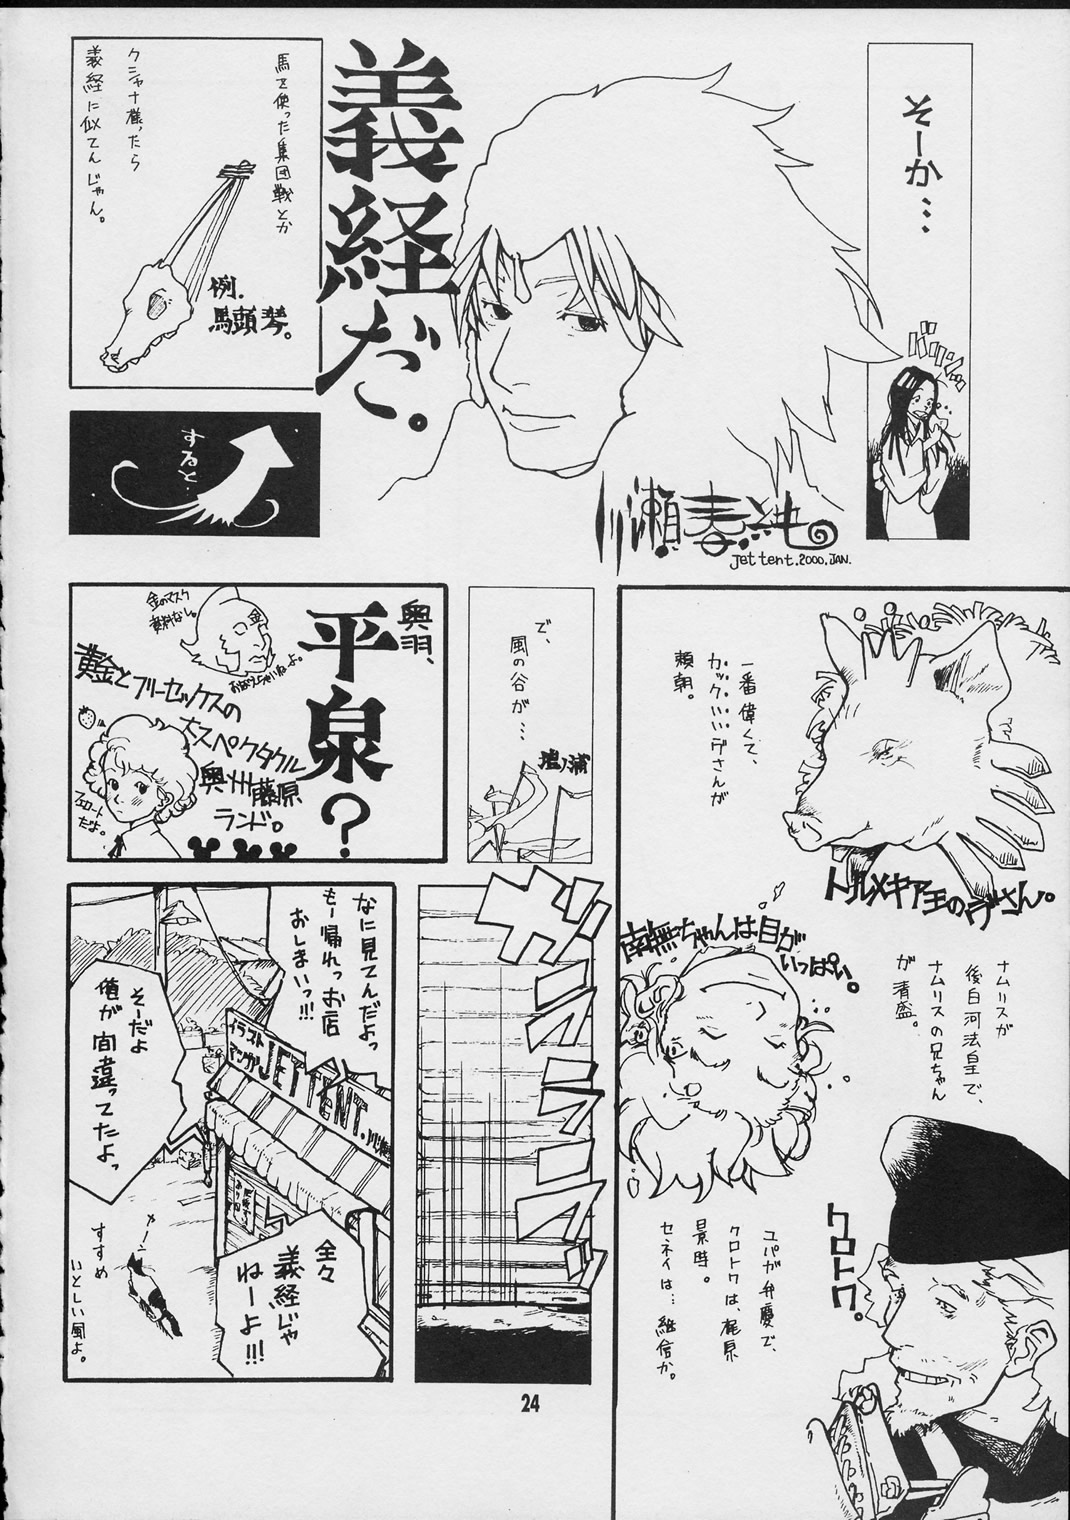 そーか…
バリバリッ
義経だ。
川瀬春純
jet tent.2000.JAN.
馬を使った集団戦とか
クシャナ様ったら
義経に似てんじゃん。
例.
馬頭琴。
すると…
一番偉くて、
カックいいヂさんが
頼朝。
トルメキア王のヂさん。
ナムリスが
後白河法皇で、
ナムリスの兄ちゃん
が清盛。
南無ちゃんは目が
いっぱい。
ユパが弁慶で、
クロトワは、梶原
景時。
セネイは…継信か。
クロトワ。
で、
風の谷が…
壇ノ浦
奥羽、
平泉?
金のマスク
黄金とフリーセックスの
大スペクタクル
奥州藤原
ランド。
フェロート
だよ。
ガラガラガラッ
なに見てんだよっ
もー帰れっお店
おしまいっ!!!
そーだよ
俺が間違ってたよっ
イラスト
マンガ
JET TENT.
全々
義経じゃ
ねーよ!!!
カーン
すすめ
いとしい風よ。
24